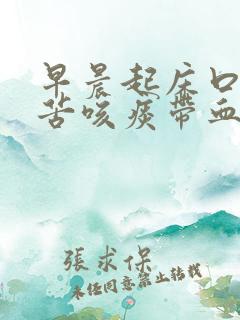 早晨起床口
苦咳痰带血
張求保
未经同意禁止转载